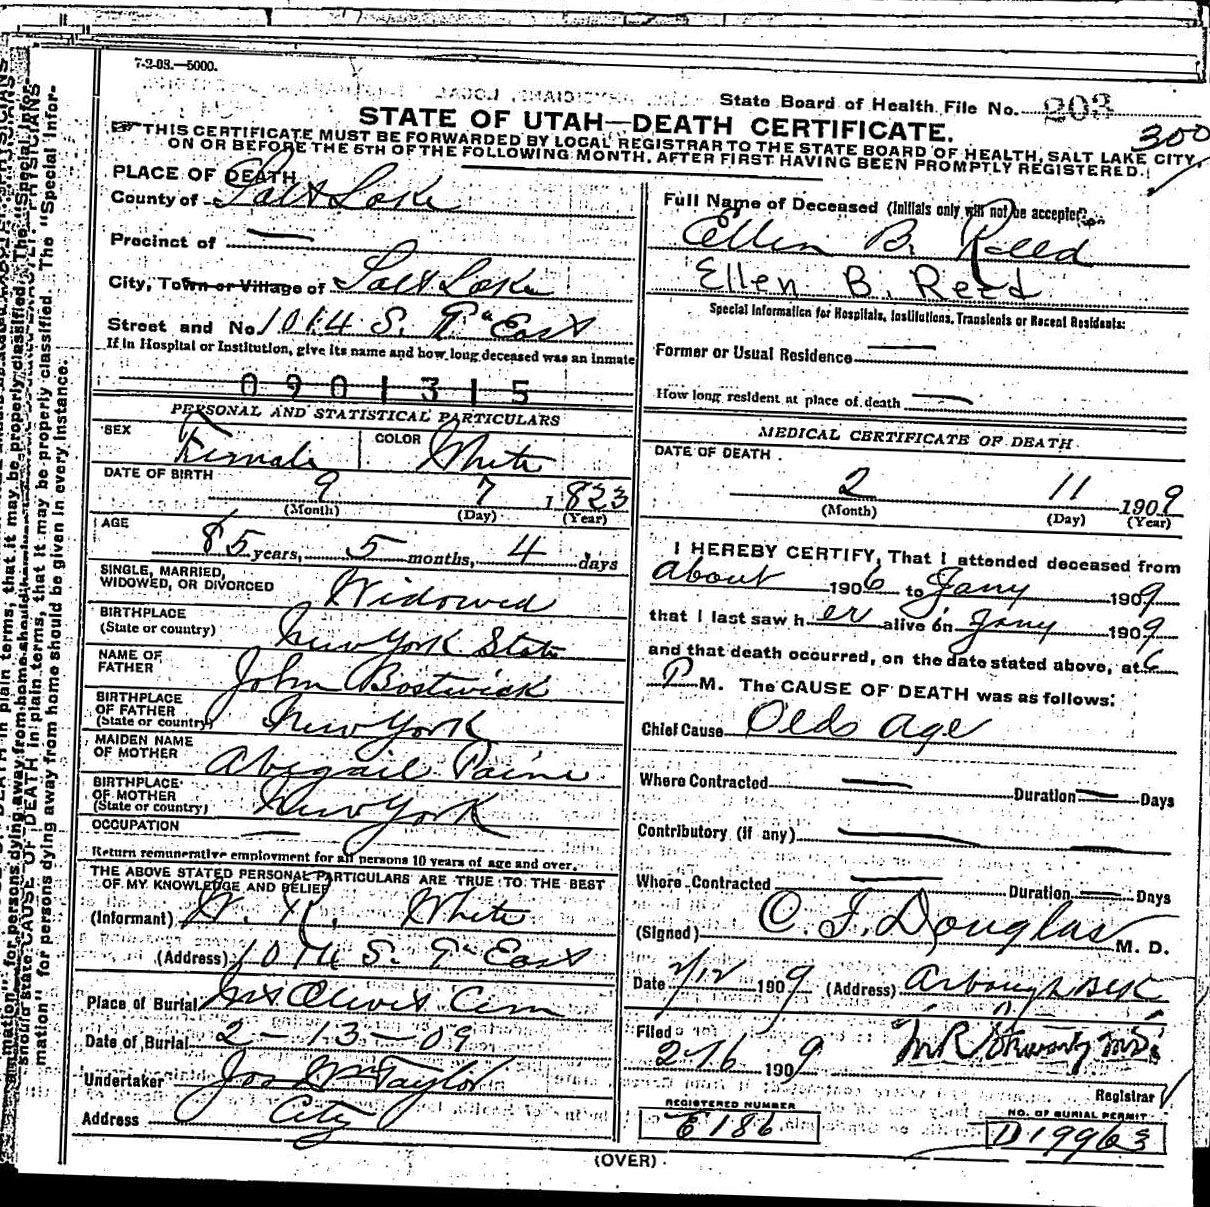 7-2-08.—5000.
State Board of Health File No. 203
300
STATE OF UTAH—DEATH CERTIFICATE.
THIS CERTIFICATE MUST BE FORWARDED BY LOCAL REGISTRAR TO THE STATE BOARD OF HEALTH, SALT LAKE CITY,
ON OR BEFORE THE 5TH OF THE FOLLOWING MONTH, AFTER FIRST HAVING BEEN PROMPTLY REGISTERED.
PLACE OF DEATH
County of Salt Lake
Precinct of —
City, Town or Village of Salt Lake
Street and No. 1014 S. 9" East
If in Hospital or Institution, give its name and how long deceased was an inmate
0901315
PERSONAL AND STATISTICAL PARTICULARS
SEX Female COLOR White
DATE OF BIRTH 9 7 1823
(Month) (Day) (Year)
AGE 85 years, 5 months, 4 days
SINGLE, MARRIED,
WIDOWED, OR DIVORCED Widowed
BIRTHPLACE
(State or country) New York State
NAME OF
FATHER John Bostwick
BIRTHPLACE
OF FATHER
(State or country) New York
MAIDEN NAME
OF MOTHER Abigail Paine
BIRTHPLACE
OF MOTHER
(State or country) New York
OCCUPATION —
Return remunerative employment for all persons 10 years of age and over.
THE ABOVE STATED PERSONAL PARTICULARS ARE TRUE TO THE BEST
OF MY KNOWLEDGE AND BELIEF
(Informant) White
(Address) 1014 S. 9" East
Place of Burial Mt Olivet Cem
Date of Burial 2-13-09
Undertaker Jos Wm Taylor
Address City
Full Name of Deceased (Initials only will not be accepted)
Ellen B. Reed
Ellen B. Reed
Special Information for Hospitals, Institutions, Transients or Recent Residents:
Former or Usual Residence —
How long resident at place of death —
MEDICAL CERTIFICATE OF DEATH
DATE OF DEATH
2 11 1909
(Month) (Day) (Year)
I HEREBY CERTIFY, That I attended deceased from
about 1906 to Jany 1909
that I last saw h er alive on Jany 1909
and that death occurred, on the date stated above, at 6
P M. The CAUSE OF DEATH was as follows:
Chief Cause Old Age
Where Contracted — Duration — Days
Contributory (if any) —
Where Contracted — Duration — Days
(Signed) C. F. Douglas M. D.
Date 2/12 1909 (Address)
Filed 2-16 1909
Registrar
REGISTERED NUMBER
E186
NO. OF BURIAL PERMIT
D19963
(OVER)